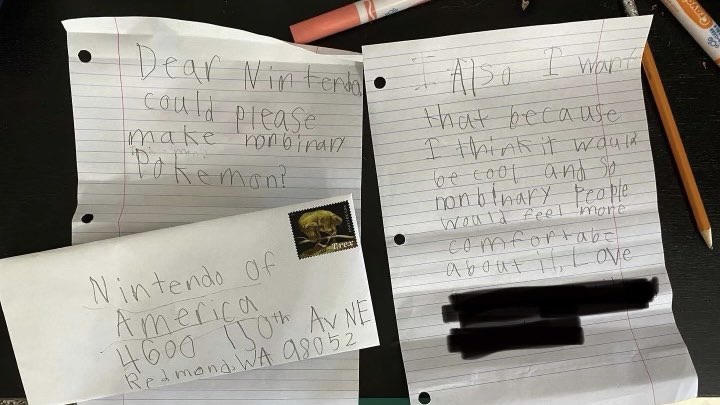 Dear Nintendo
could please
make nonbinary
Pokemon?
I Also I want
that because
I think it would
be cool and so
nonbinary People
would feel more
comfortabe
about it, Love
T.rex
Nintendo of
America
4600 150th Av NE
Redmond, WA 98052